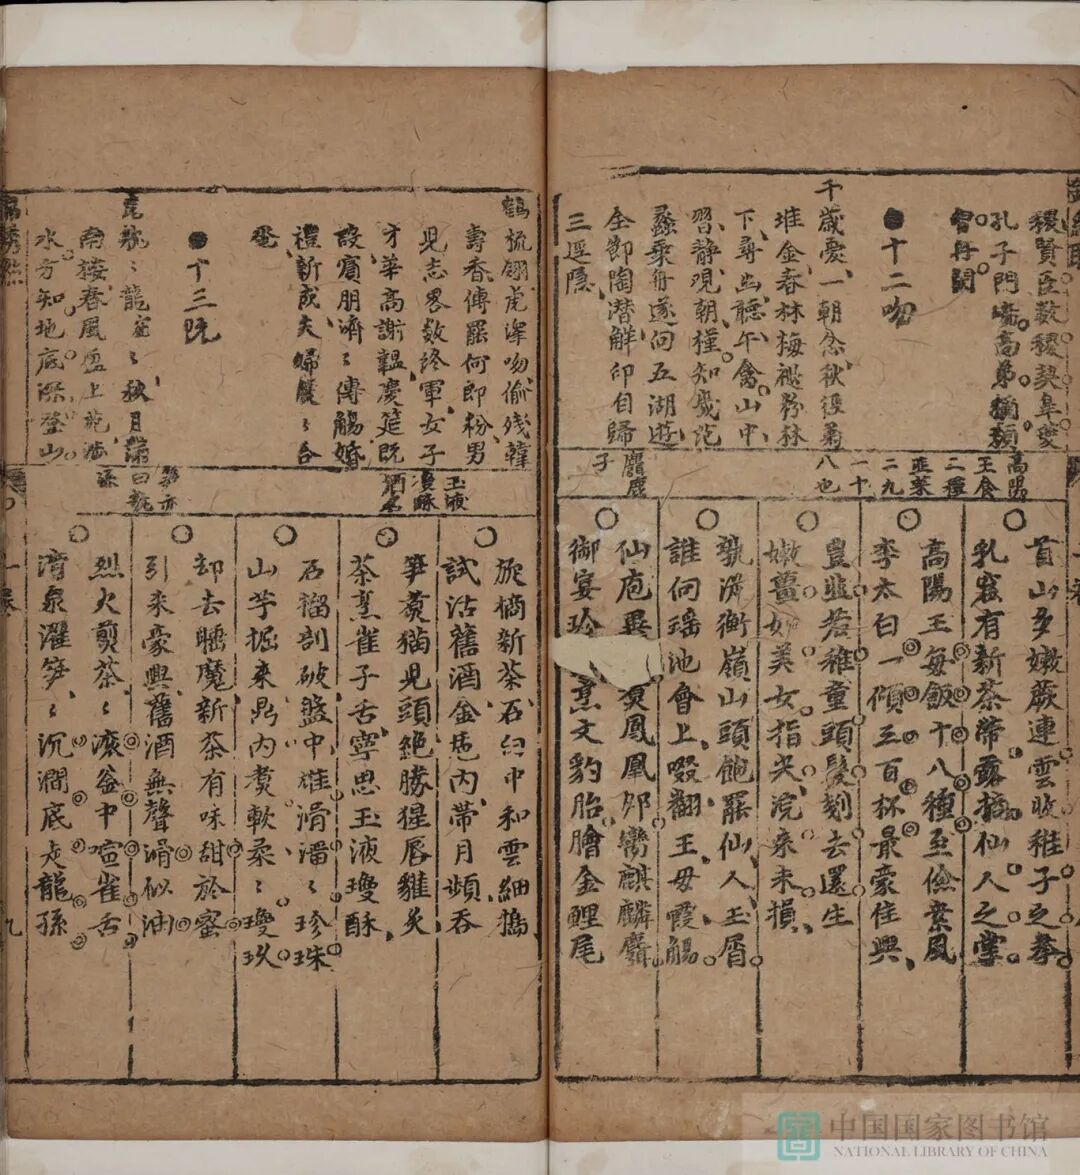 稷賢臣數稷契皋夔
孔子門墻高弟獨顏
曾冉閔
●十二吻
千歲憂一朝忿秋徑菊
堆金春林梅褪粉林
下尋幽聽午禽山中
習靜觀朝槿知幾范
蠡乘舟遂向五湖遊
全節陶潛解印自歸
三逕隱
高陽
王食
二種
韭菜
二九
一十
八也
麕鹿
子
首山多嫩蕨連雲收稚子之拳
乳窟有新茶帶露摘仙人之掌
高陽王每飯十八種至儉素風
李太白一傾三百杯最豪佳興
豊韭若稚童頭髮刻去還生
嫩薑如美女指尖浣来未損
飢消衡嶺山頭飽罷仙人玉屑
誰向瑶池會上啜翻王母霞觴
仙庖
鳳凰卵鸞麒麟麝
御宴珍
烹文豹胎膾金鯉尾
鶴梳翎虎渾吻偷殘韓
壽香傅罷何郎粉男
児志畧数終軍女子
才華高謝韞慶筵既
設賓朋濟〻傳觴婚
禮新成夫婦雙〻合
卺
●十三阮
龍窒〻秋月滿
南楼春風盈上苑臨
水方知地底深登山
玉液
瓊酥
酒名
笋亦
曰龍
孫
旋摘新茶石臼中和雲細搗
試沽舊酒金巵内帶月頻呑
笋煑猫児頭絶勝猩唇雞炙
茶烹雀子舌寧思玉液瓊酥
石榴剖破盤中堆滑溜〻珍珠
山芋掘来鼎内煑軟柔〻瓊玖
却去睡魔新茶有味甜於蜜
引来豪興舊酒無聲滑似油
烈火煎茶〻滾釡中喧雀舌
清泉濯笋〻沉澗底走龍孫
九
中国国家图书馆
NATIONAL LIBRARY OF CHINA